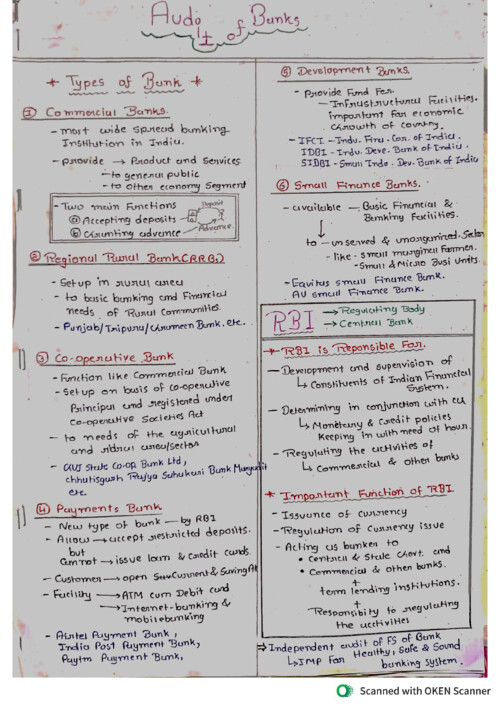 Audit of Banks
* Types of Bank *
① Commercial Banks.
- most wide spread banking
Institution in India.
- provide → Product and Services
→ to general public
→ to Other economy Segment
- Two main Functions
ⓐ Accepting deposits
ⓑ Granting advance
Deposit
Advance
② Regional Rural Bank (RRBs)
- Setup in rural area
- to basic banking and Financial
needs of Rural Communities.
- Punjab/Tripura/Grameen Bank. etc.
③ Co-operative Bank
- Function like Commercial Bank
- Setup on basis of co-operative
Principal and registered under
Co-operative Societies Act
- to needs of the agricultural
and rural area/sector
State Co-op Bank Ltd,
Chhattisgarh Rajya Sahakari Bank
etc.
④ Payments Bank
- New type of bank — by RBI
- Allow → accept restricted deposits.
but
cannot → issue loan & Credit cards.
- Customer → open Current & Saving
- Facility → ATM cum Debit card
→ Internet-banking &
mobilebanking
- Airtel Payment Bank,
India Post Payment Bank,
Paytm Payment Bank,
⑤ Development Banks.
- Provide Fund For.
— Infrastructural Facilities.
important for economic
Growth of country.
- IFCI - Indu. Fina. Con. of India.
IDBI - Indu. Deve. Bank of India.
SIDBI - Small Indo. Dev. Bank of India
⑥ Small Finance Banks.
- available — Basic Financial &
Banking Facilities.
↓
to - unserved & unorganized-Sector
- like - small marginal Farmer.
- Small & Micro Busi Units.
- Equitas small Finance Bank.
AU small Finance Bank.
RBI → Regulating Body
→ Central Bank
* RBI is Reponsible For.
— Development and supervision of
↳ Constituents of Indian Financial
System.
- Determining in conjunction with CG
↳ Monetary & Credit policies
Keeping in with need of hour.
- Regulating the activities of
↳ Commercial & other banks
* Important Function of RBI
- Issuance of currency
- Regulation of Currency issue
- Acting as banker to
• Central & State Govt. and
• Commercial & other banks.
+
term lending institutions.
+
Responsibity to regulating
the activities
⇒ Independent audit of FS of Bank
↳ IMP For Healthy, Safe & Sound
banking system.
Scanned with OKEN Scanner